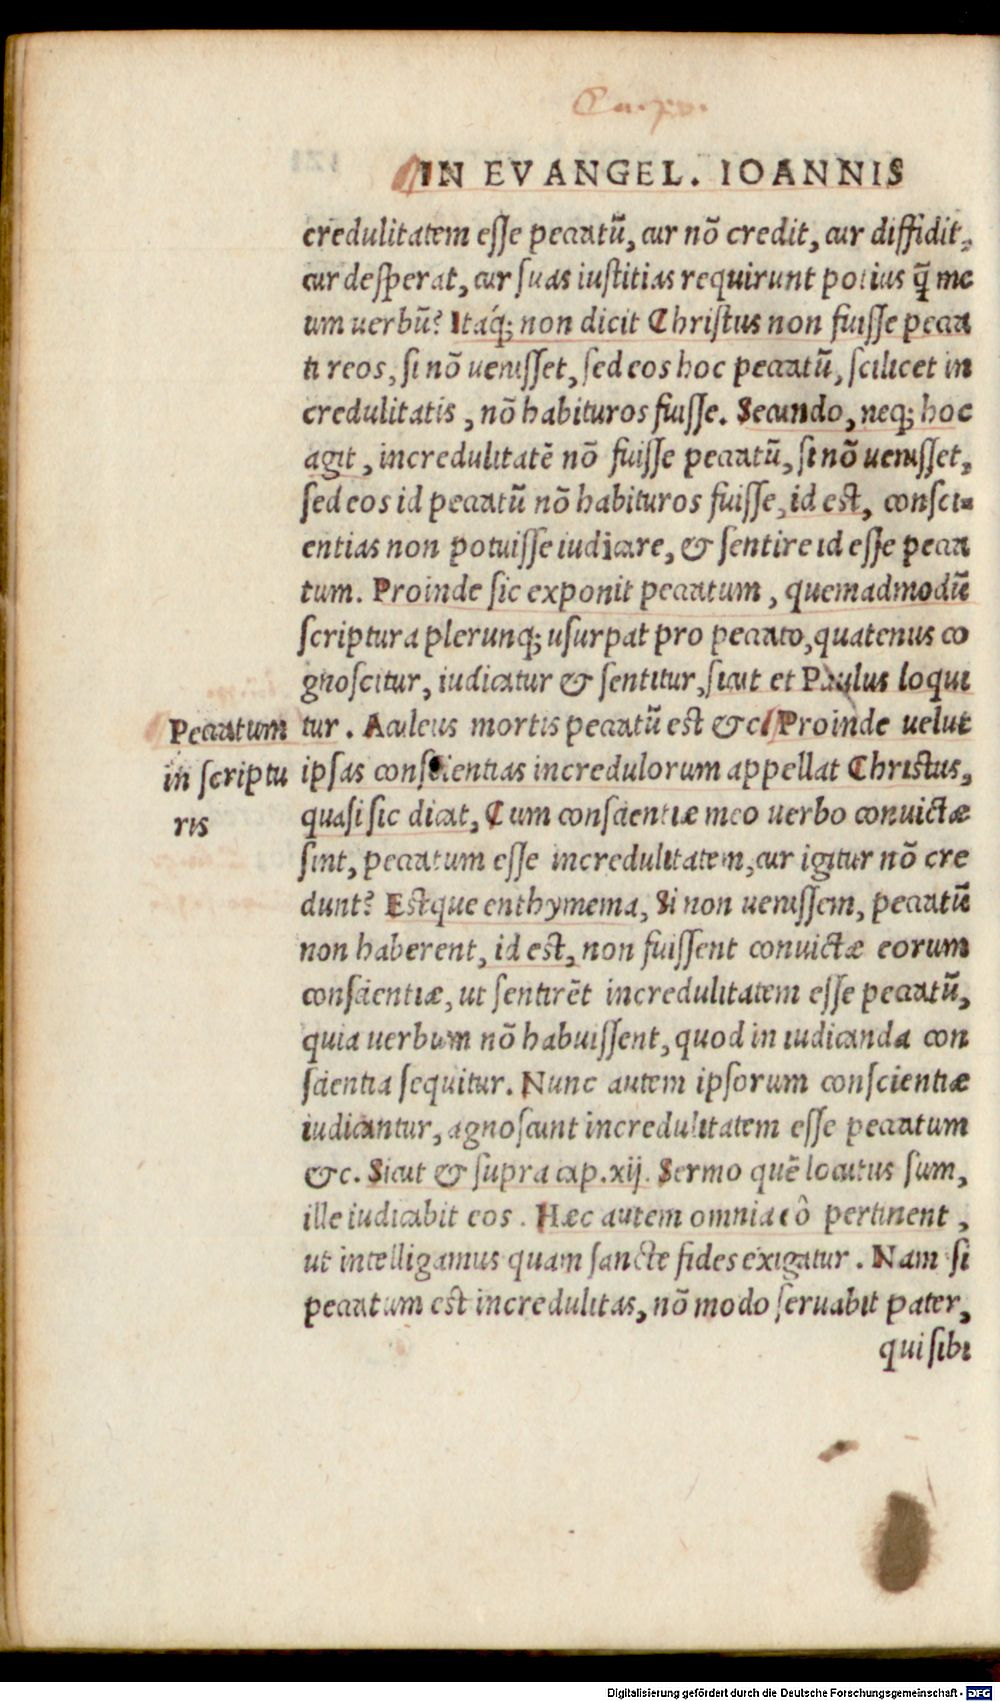 Ca. xv.
IN EVANGEL. IOANNIS
credulitatem esse peccatũ, cur nõ credit, cur diffidit,
cur desperat, cur suas iustitias requirunt potius q̃ me
um uerbũ? Itáq; non dicit Christus non fuisse pecca
ti reos, si nõ uenisset, sed eos hoc peccatũ, scilicet in
credulitatis, nõ habituros fuisse. Secundo, neq; hoc
agit, incredulitatẽ nõ fuisse peccatũ, si nõ uenisset,
sed eos id peccatũ nõ habituros fuisse, id est, consci-
entias non potuisse iudicare, & sentire id esse pecca
tum. Proinde sic exponit peccatum, quemadmodũ
scriptura plerunq; usurpat pro peccato, quatenus co
gnoscitur, iudicatur & sentitur, sicut et Paulus loqui
tur. Aculeus mortis peccatũ est &c. Proinde uelut
ipsas conscientias incredulorum appellat Christus,
quasi sic dicat, Cum conscientiæ meo uerbo conuictæ
sint, peccatum esse incredulitatem, cur igitur nõ cre
dunt? Estque enthymema, Si non uenissem, peccatũ
non haberent, id est, non fuissent conuictæ eorum
conscientiæ, ut sentirẽt incredulitatem esse peccatũ,
quia uerbum nõ habuissent, quod in iudicanda con
scientia sequitur. Nunc autem ipsorum conscientiæ
iudicantur, agnoscunt incredulitatem esse peccatum
&c. Sicut & supra cap. xij. Sermo quẽ locutus sum,
ille iudicabit eos. Hæc autem omnia eô pertinent,
ut intelligamus quam sancte fides exigatur. Nam si
peccatum est incredulitas, nõ modo seruabit pater,
qui sibi
Peccatum
in scriptu
ris
Digitalisierung gefördert durch die Deutsche Forschungsgemeinschaft - DFG